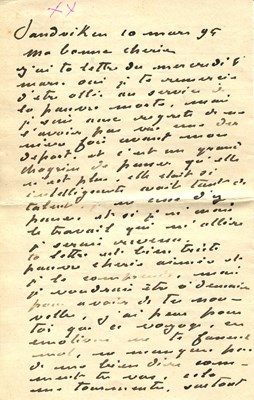 XX
Sandviken 10 mars 95
Ma bonne cherie
j'ai ta lettre du mercredi 6
mars oui je te remercie
d'être allé au service de
la pauvre morte, mais
j'ai une regrets de ne
l'avoir pas vu une der
nière fois avant mon
départ et c'est un grand
chagrin de penser qu'elle
n'est plus. elle etait si
intelligente avait tant de
talent, je ne cesse d'y
penser et si je n'avais
le travail qui m'attire
je serais revenu.
ta lettre est bien triste
pauvre cherie aimée et
je le comprends, mais
je voudrais être à demain
pour avoir de tes nou
velles, j'ai peur pour
toi que ce voyage, ces
émotions ne te fassent
mal, ne manque pas
de me bien dire com-
ment tu vas, cela
me tourmente, surtout